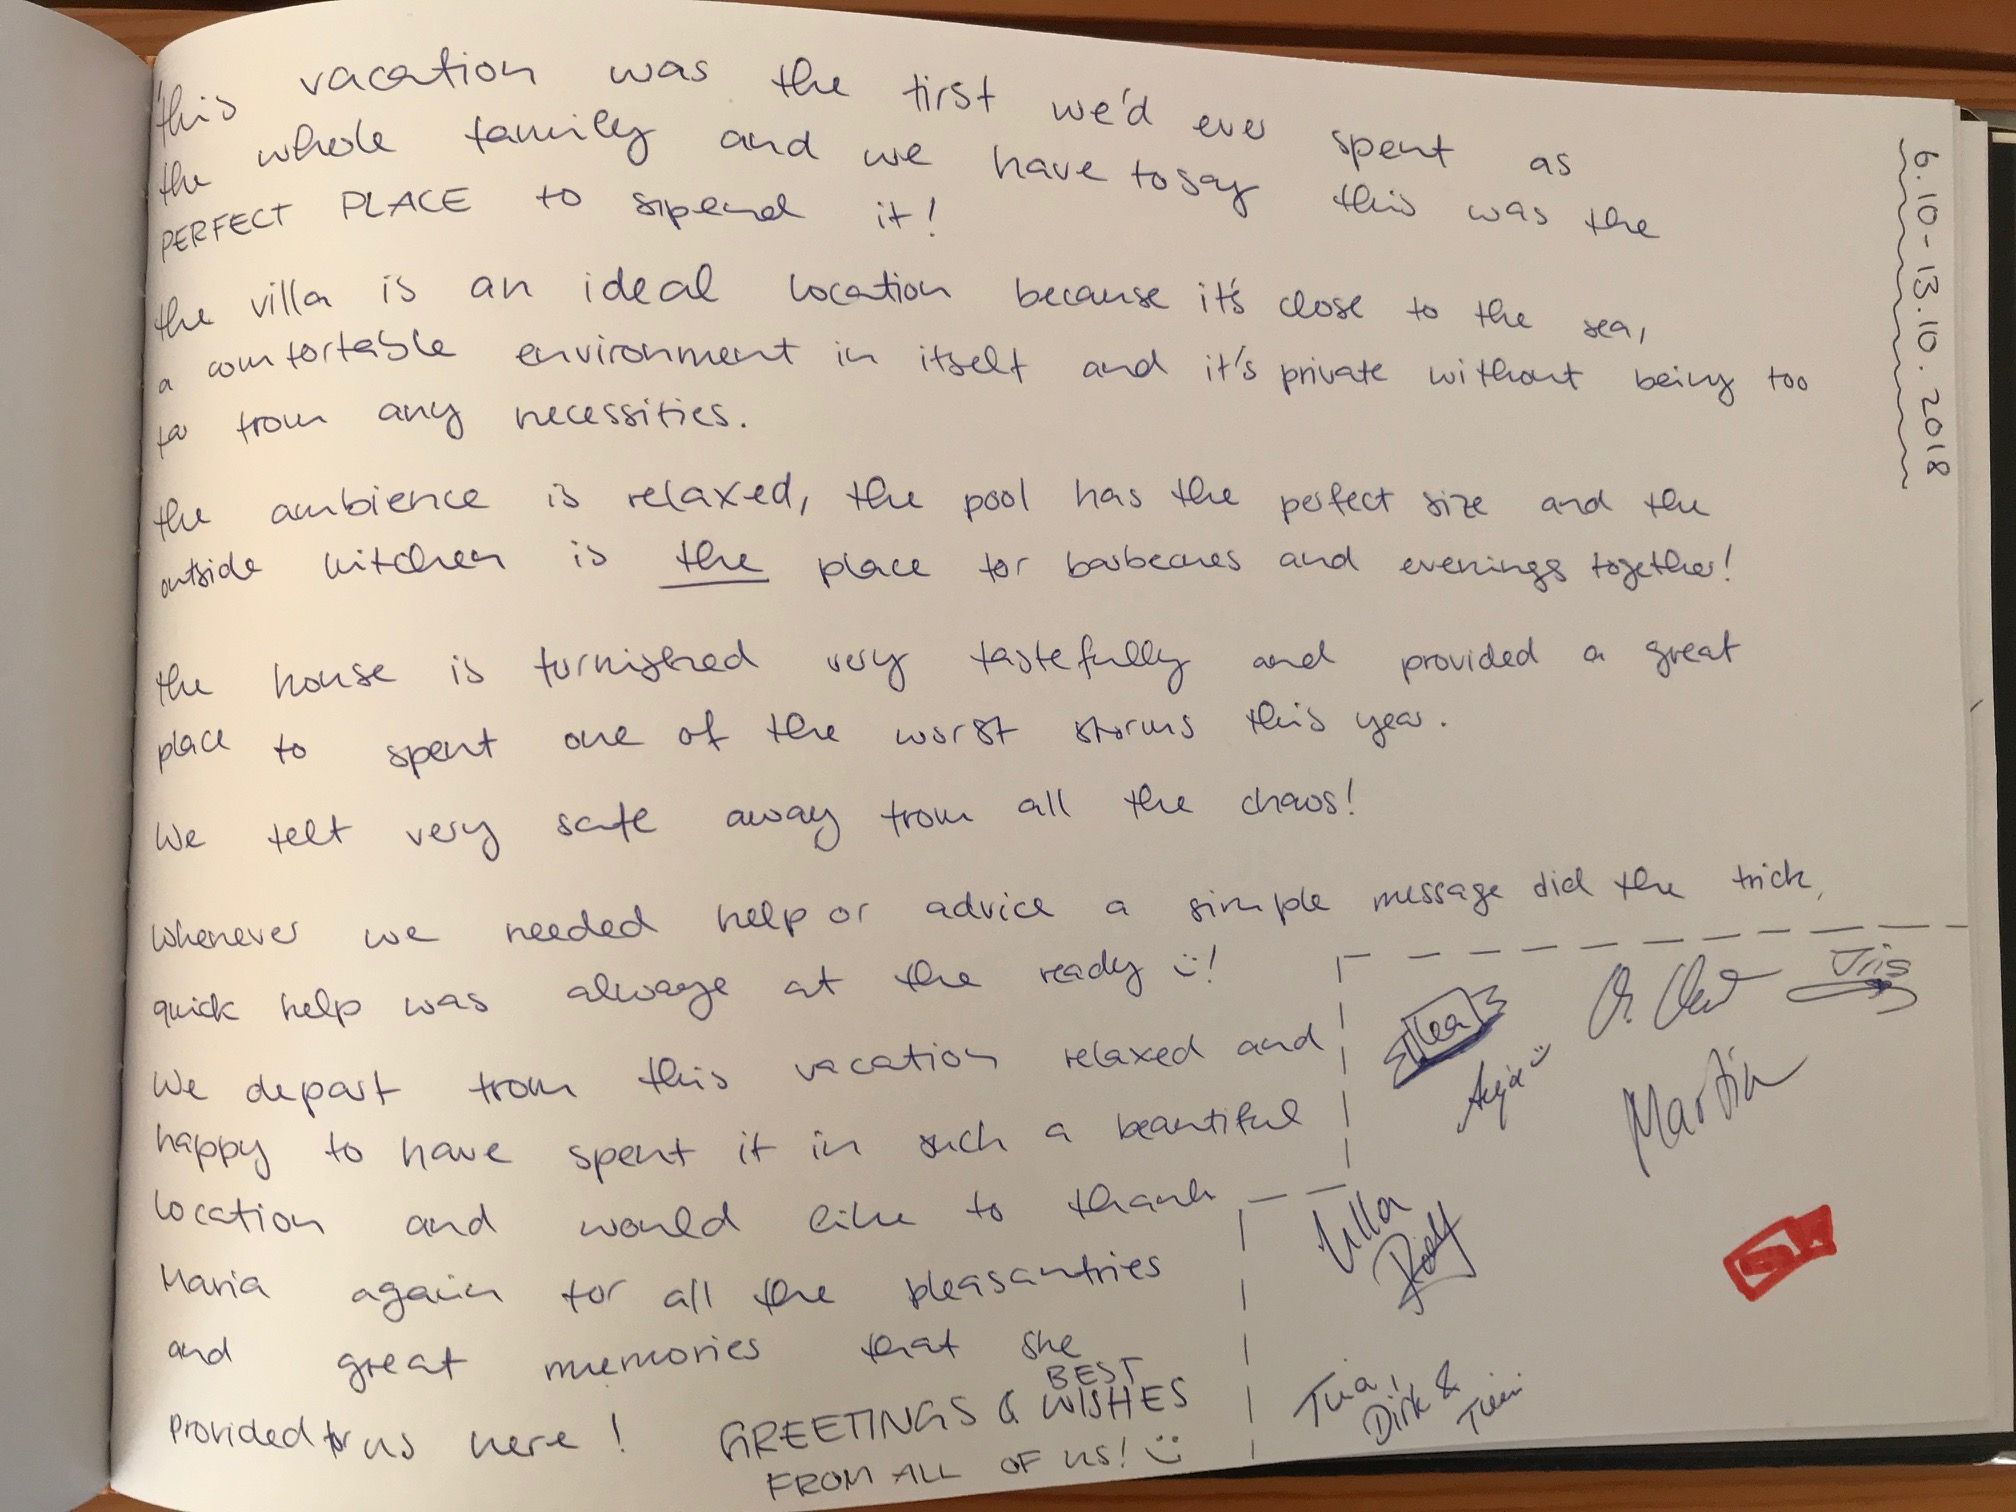 this vacation was the first we'd ever spent as
the whole family and we have to say this was the
PERFECT PLACE to spend it!
the villa is an ideal location because it's close to the sea,
a comfortable environment in itself and it's private without being too
far from any necessities.
the ambience is relaxed, the pool has the perfect size and the
outside kitchen is the place for barbecues and evenings together!
the house is furnished very tastefully and provided a great
place to spent one of the worst storms this year.
We felt very safe away from all the chaos!
Whenever we needed help or advice a simple message did the trick,
quick help was always at the ready :)!
We depart from this vacation relaxed and
happy to have spent it in such a beautiful
location and would like to thank
Maria again for all the pleasantries
and great memories that she
provided for us here!
GREETINGS & BEST WISHES
FROM ALL OF US! :)
6.10-13.10.2018
Lea
Iris
Martin
Ulla
Rolf
Tua,
Dirk &